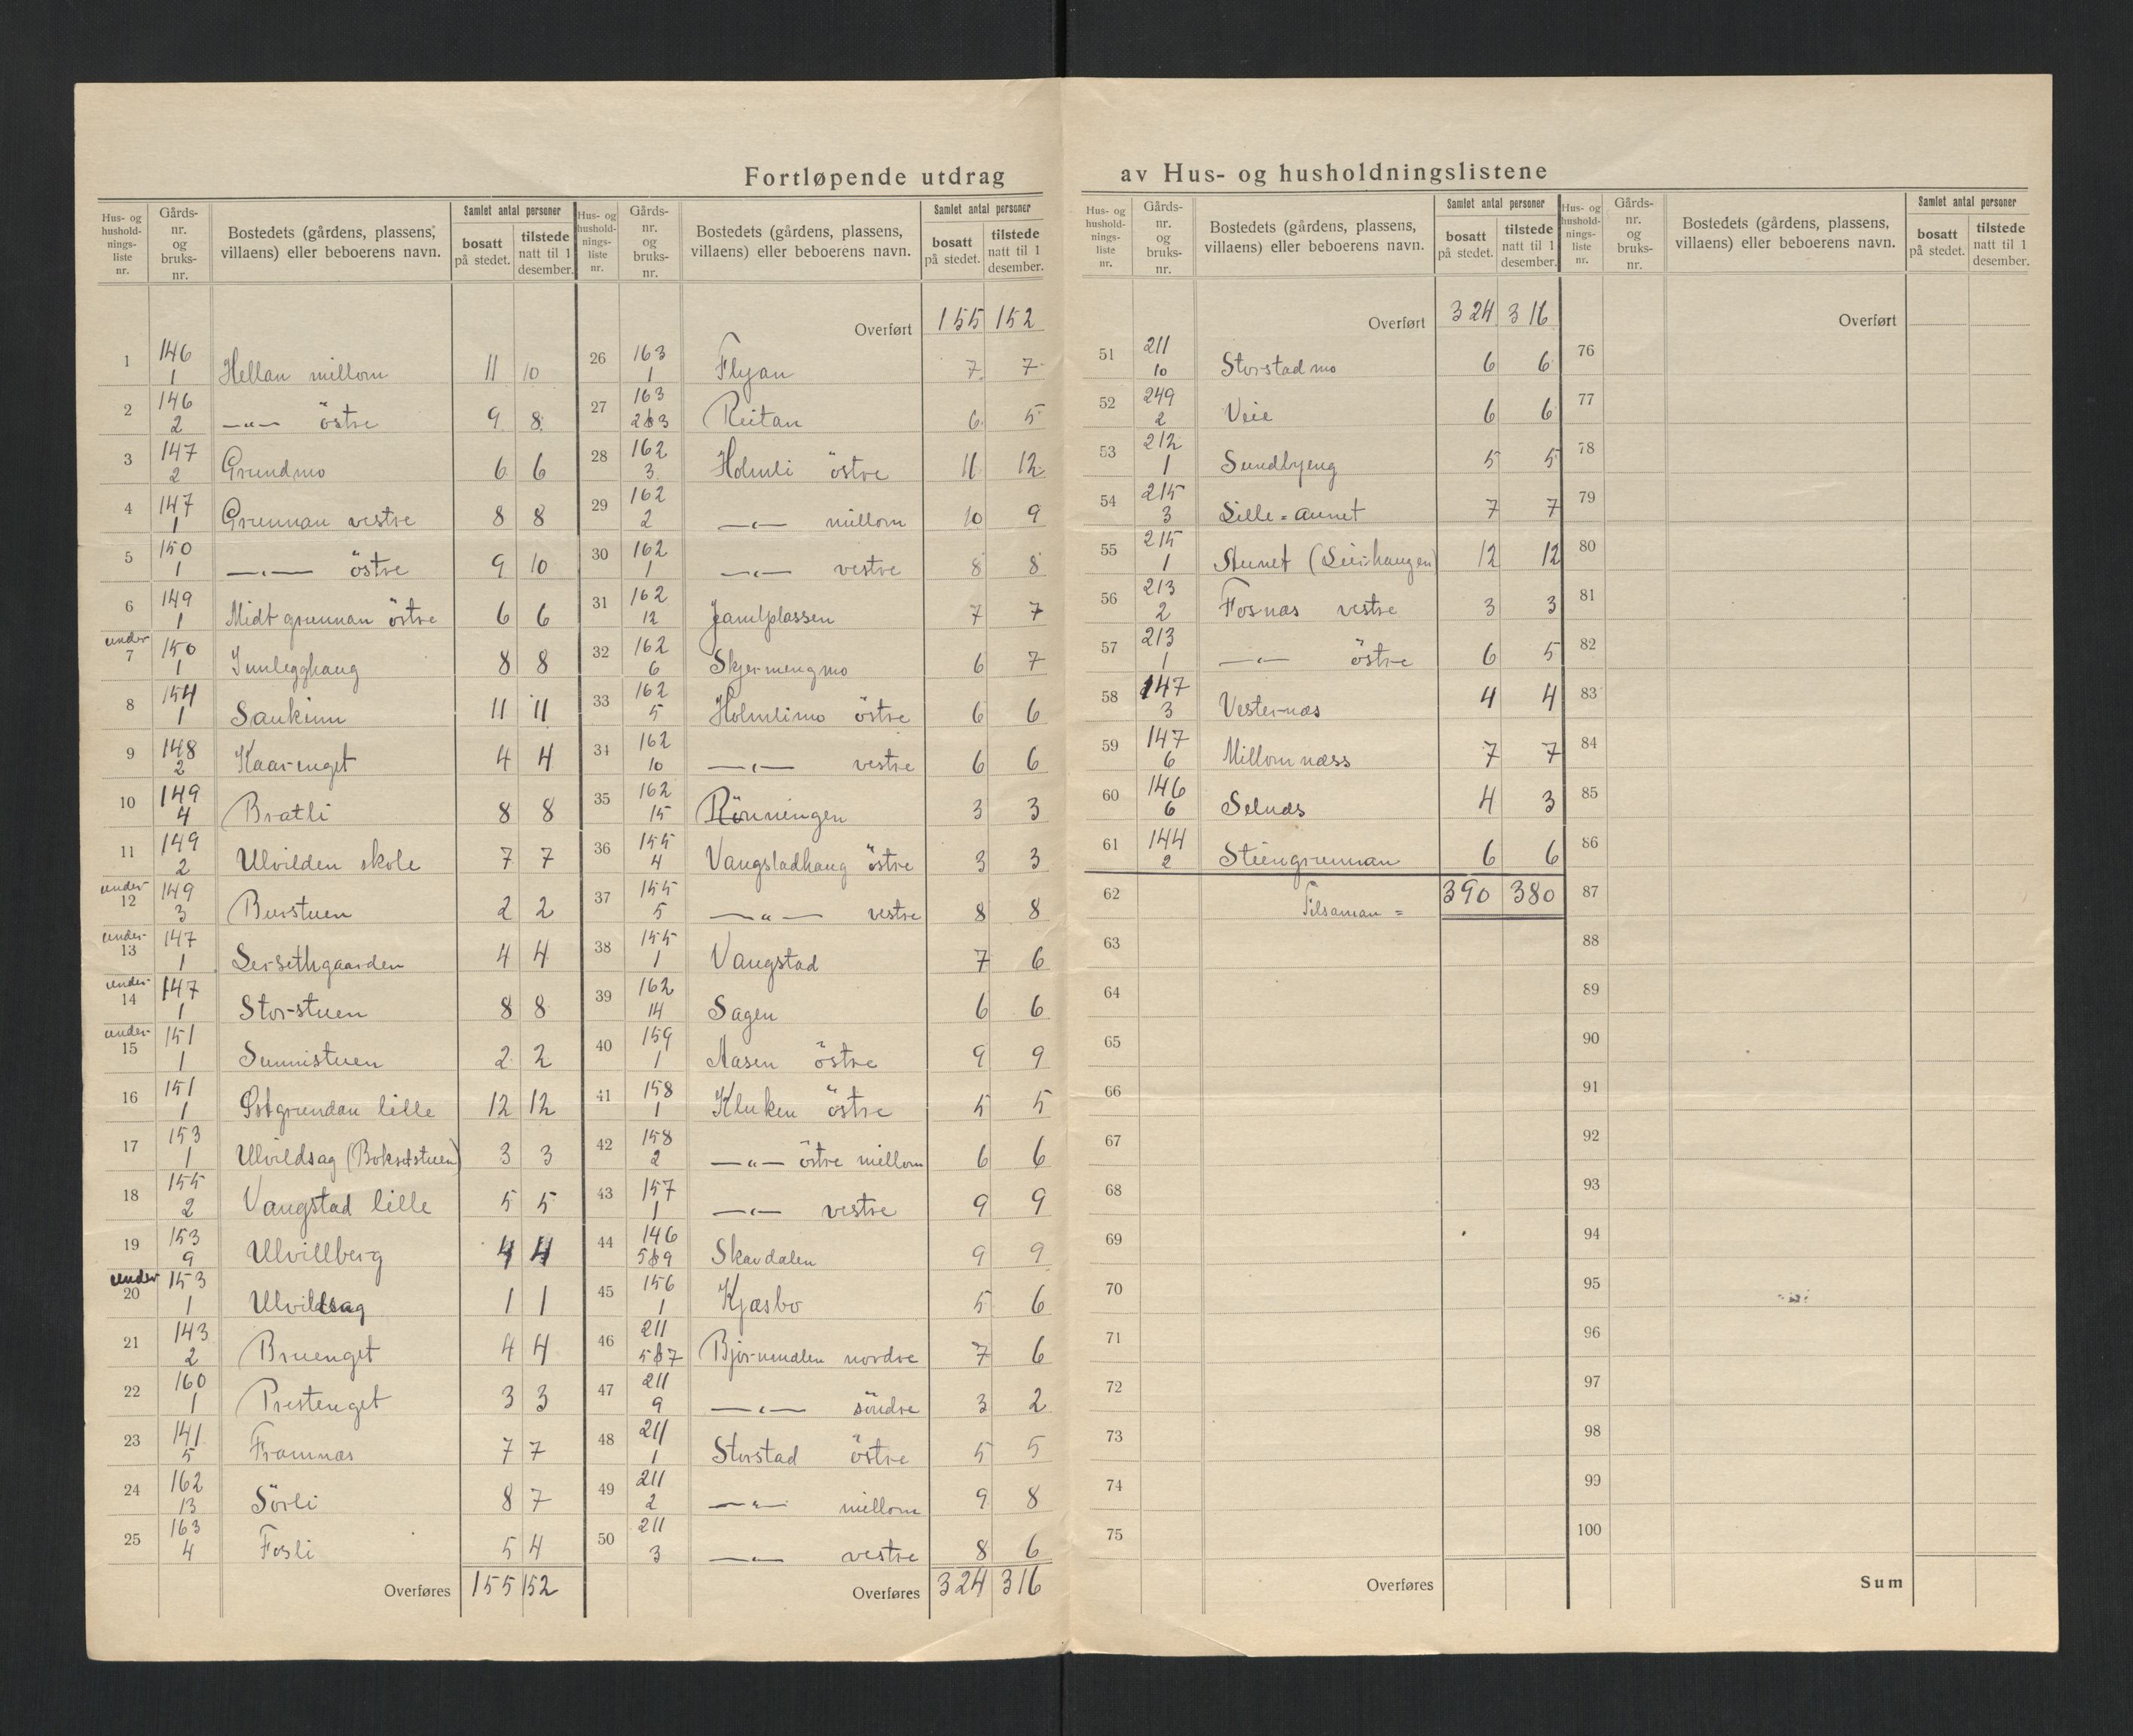 Fortløpende utdrag av Hus- og husholdningslistene
Hus- og hushold-nings-liste nr. | Gårds-nr. og bruks-nr. | Bostedets (gårdens, plassens, villaens) eller beboerens navn. | Samlet antal personer | bosatt på stedet. | tilstede natt til 1 desember.
1 146 1 Hellan millom 11 10
2 146 2 —"— östre 9 8
3 147 2 Grundmo 6 6
4 147 1 Grunnan vestre 8 8
5 150 1 —"— östre 9 10
6 149 1 Midtgrunnan östre 6 6
under 7 150 1 Innlegghaug 8 8
8 154 1 Saukinn 11 11
9 148 2 Kaarenget 4 4
10 149 4 Bratli 8 8
11 149 2 Ulvilden skole 7 7
under 12 149 3 Burstuen 2 2
under 13 147 1 Lersethgaarden 4 4
under 14 147 1 Storstuen 8 8
under 15 151 1 Sunnistuen 2 2
16 151 1 Östgrundan lille 12 12
17 153 1 Ulvildsag (Boksetstuen) 3 3
18 155 2 Vangstad lille 5 5
19 153 9 Ulvillberg 4 4
under 20 153 1 Ulvildsag 1 1
21 143 2 Bruenget 4 4
22 160 1 Prestenget 3 3
23 141 5 Framnæs 7 7
24 162 13 Sörli 8 7
25 163 4 Fosli 5 4
Overføres 155 152
Hus- og hushold-nings-liste nr. | Gårds-nr. og bruks-nr. | Bostedets (gårdens, plassens, villaens) eller beboerens navn. | Samlet antal personer | bosatt på stedet. | tilstede natt til 1 desember.
Overført 155 152
26 163 1 Flyan 7 7
27 163 2&3 Reitan 6 5
28 162 3 Holmli östre 11 12
29 162 2 —"— millom 10 9
30 162 1 —"— vestre 8 8
31 162 12 Jamtplassen 7 7
32 162 6 Skjermengmo 6 7
33 162 5 Holmlimo östre 6 6
34 162 10 —"— vestre 6 6
35 162 15 Rönningen 3 3
36 155 4 Vangstadhaug östre 3 3
37 155 5 —"— vestre 8 8
38 155 1 Vangstad 7 6
39 162 14 Sagen 6 6
40 159 1 Aasen östre 9 9
41 158 1 Kluken östre 5 5
42 158 2 —"— östre millom 6 6
43 157 1 —"— vestre 9 9
44 146 5&9 Skavdalen 9 9
45 156 1 Kjæsbo 5 6
46 211 5&7 Bjørnundalen nordre 7 6
47 211 9 —"— söndre 3 2
48 211 1 Storstad östre 5 5
49 211 2 —"— millom 9 8
50 211 3 —"— vestre 8 6
Overføres 324 316
Hus- og hushold-nings-liste nr. | Gårds-nr. og bruks-nr. | Bostedets (gårdens, plassens, villaens) eller beboerens navn. | Samlet antal personer | bosatt på stedet. | tilstede natt til 1 desember.
Overført 324 316
51 211 10 Storstadmo 6 6
52 249 2 Veie 6 6
53 212 1 Sundbyeng 5 5
54 215 3 Lille=aunet 7 7
55 215 1 12 12
56 213 2 Fosnæs vestre 3 3
57 213 1 —"— östre 6 5
58 147 3 Vesternæs 4 4
59 147 6 Millomnæss 7 7
60 146 6 Selnæs 4 3
61 144 2 Steingrunnan 6 6
62 Tilsaman = 390 380
63
64
65
66
67
68
69
70
71
72
73
74
75
Overføres
Hus- og hushold-nings-liste nr. | Gårds-nr. og bruks-nr. | Bostedets (gårdens, plassens, villaens) eller beboerens navn. | Samlet antal personer | bosatt på stedet. | tilstede natt til 1 desember.
Overført
76
77
78
79
80
81
82
83
84
85
86
87
88
89
90
91
92
93
94
95
96
97
98
99
100
Sum